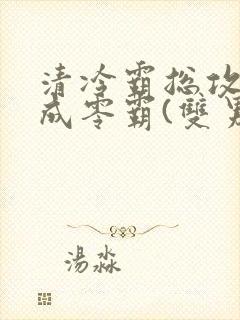 清冷霸总攻
成零霸(雙男
湯淼